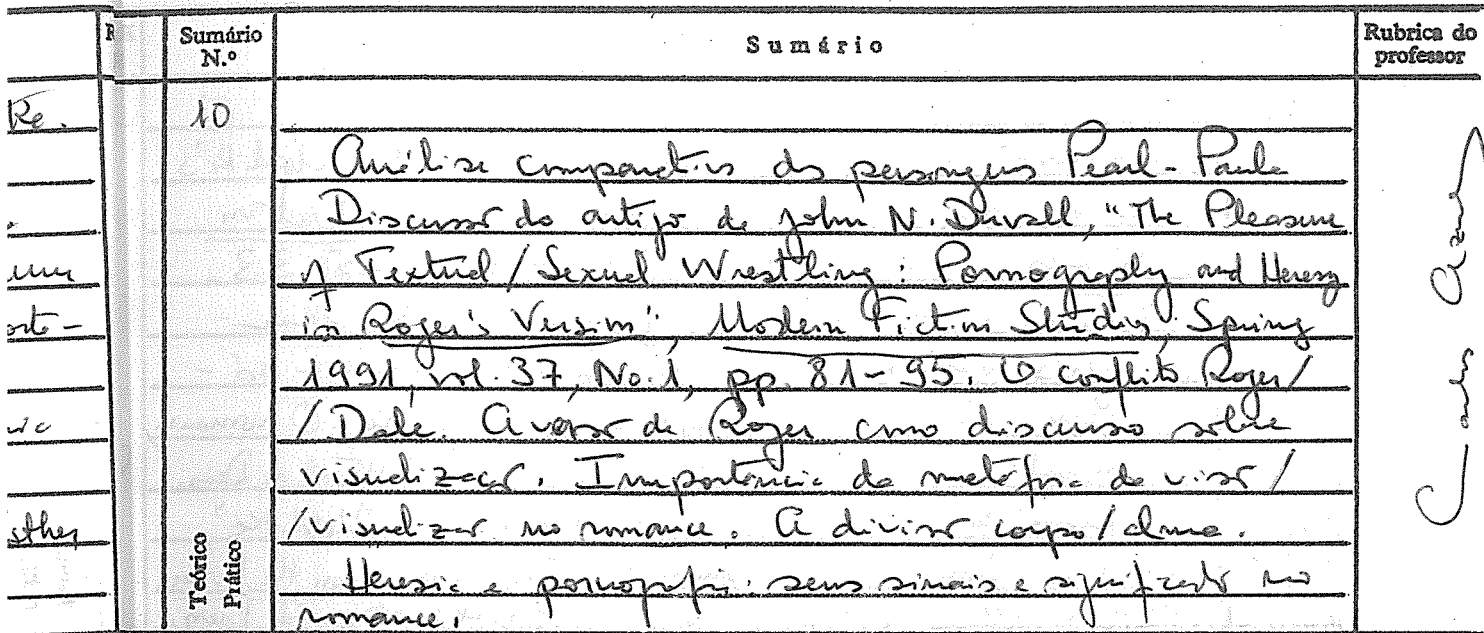 Sumário N.º
Sumário
Rubrica do professor
Re.
10
Análise comparativa das personagens Pearl-Paula
Discussão do artigo de John N. Duvall, "The Pleasure
of Textual/Sexual Wrestling: Pornography and Heresy
in Roger's Version", Modern Fiction Studies, Spring
1991, vol. 37, No. 1, pp. 81-95. O conflito Roger/
/Dale. A versão de Roger como discurso sobre
visualização. Importância da metáfora da visão/
/visualizar no romance. A divisão corpo/alma.
Heresia e pornografia: seus sinais e significado no
romance.
Teórico
Prático
orte-
sther